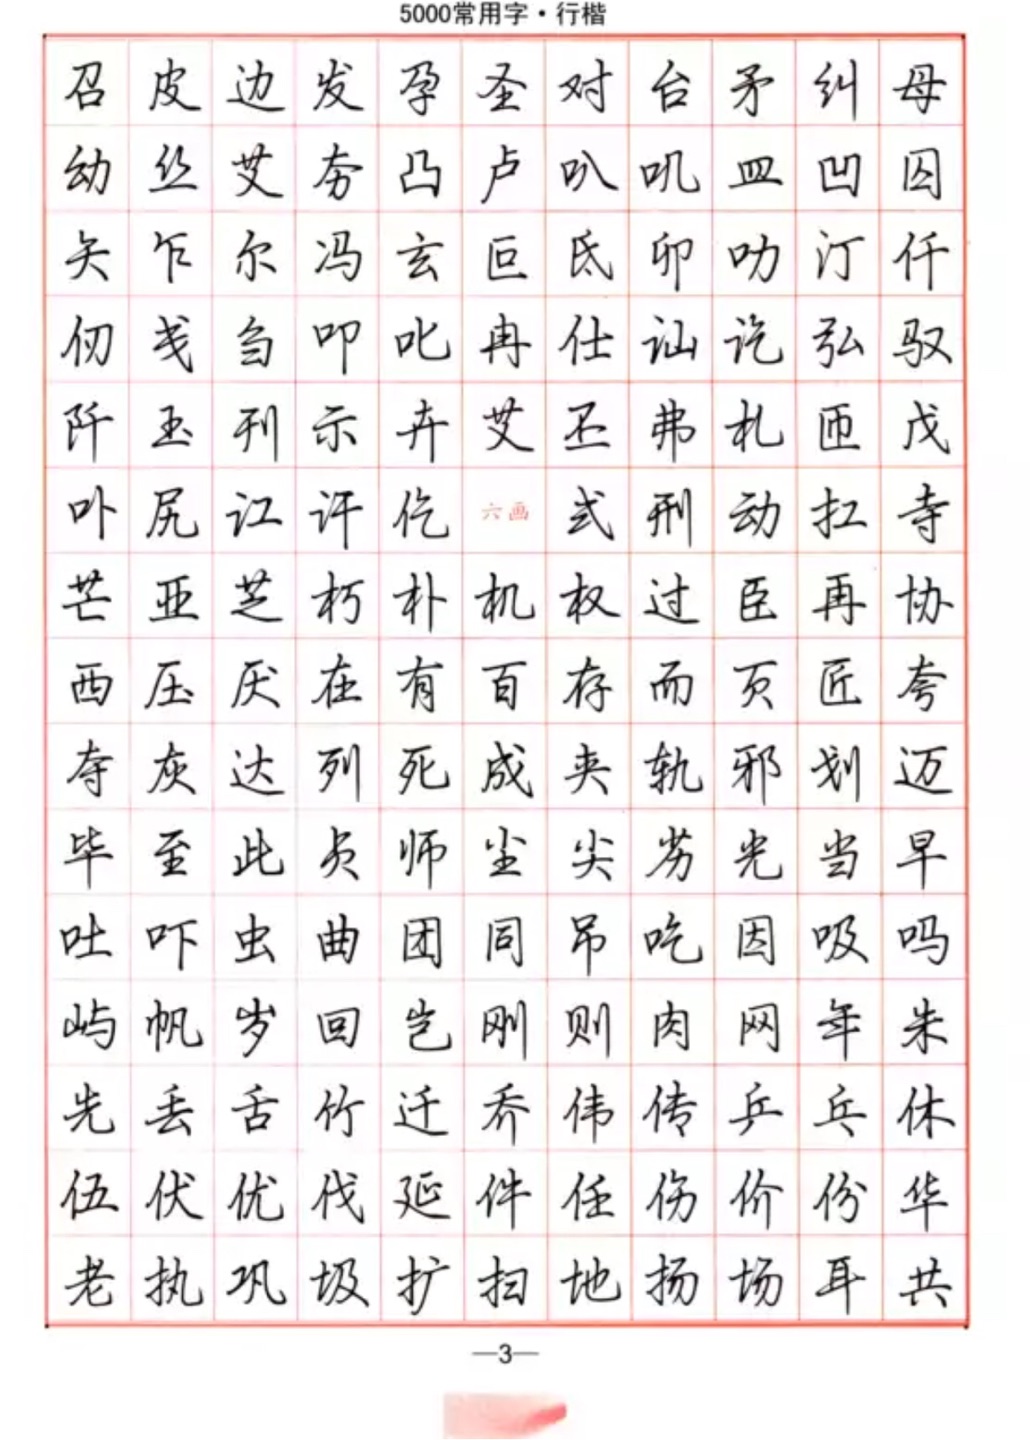 5000常用字·行楷
召皮边发孕圣对台矛纠母
幼丝艾夯凸卢叭叽皿凹囚
矢乍尔冯玄叵氐卯叻汀仟
仞戋刍叩叱冉仕讪讫弘驭
阡玉刊示卉艾丕弗札匝戊
卟尻讧讦仡六画式刑动扛寺
芒亚芝朽朴机权过臣再协
西压厌在有百存而页匠夸
夺灰达列死成夹轨邪划迈
毕至此贞师尘尖劣光当早
吐吓虫曲团同吊吃因吸吗
屿帆岁回岂刚则肉网年朱
先丢舌竹迁乔伟传乒乓休
伍伏优伐延件任伤价份华
老执巩圾扩扫地扬场耳共
—3—